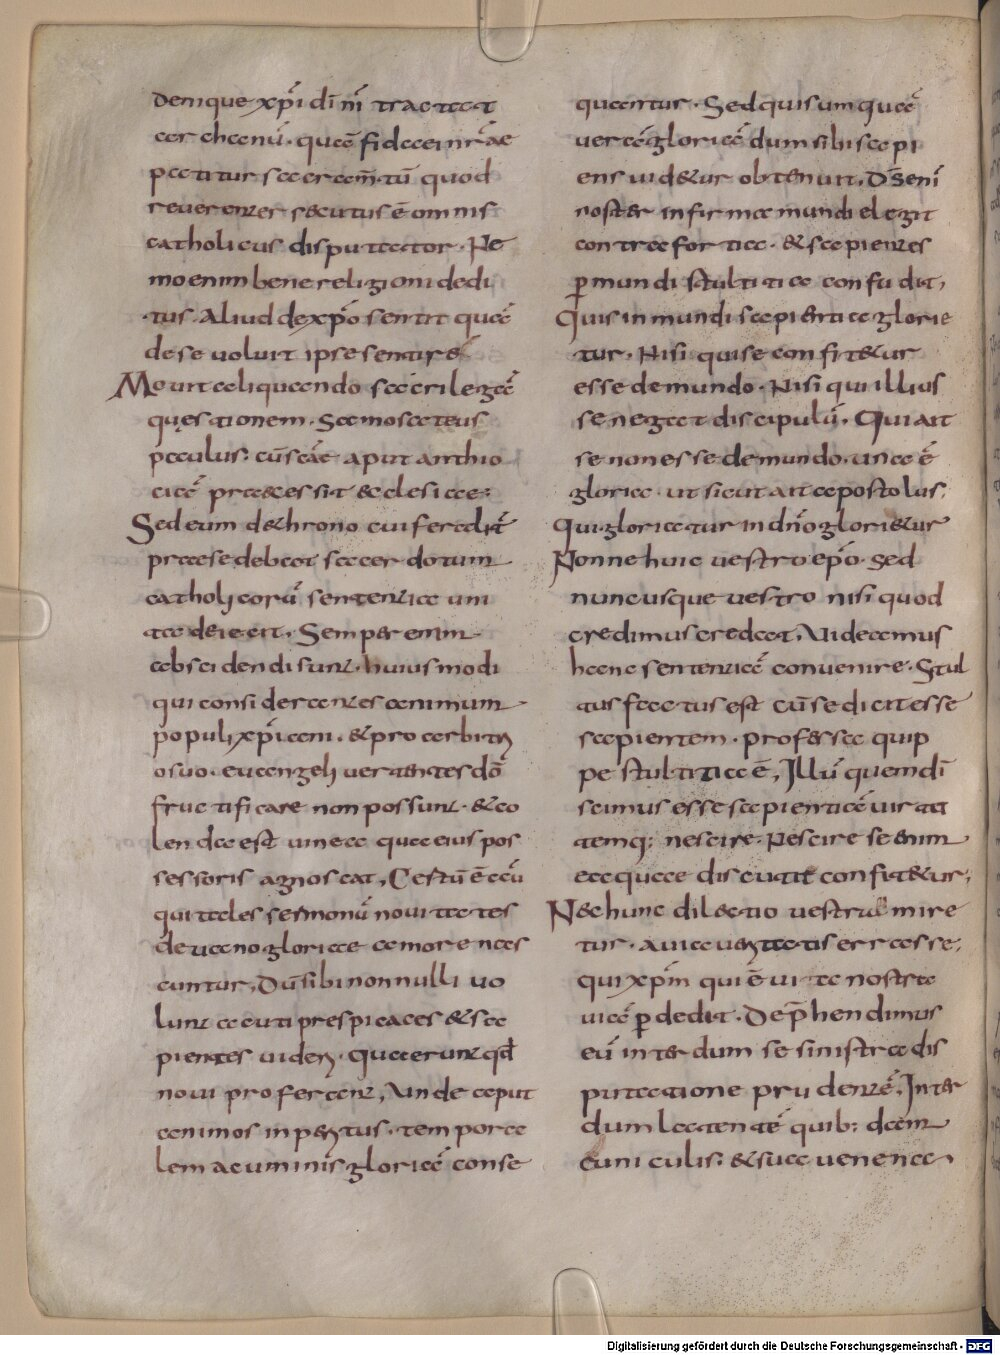 denique xp̄i dī nr̄i tractat
archanū. quā fidaei nr̄ae
patitur sacram̄tū quod
reuerenter secutus ē omnis
catholicus disputator. Ne
mo enim bene religioni dedi
tus. Aliud de xp̄o sentit quā
de se uoluit ipse sentire
Mouit aliquando sacrilegā
questionem. Samosateus
paulus: cū scāe aput anthio
ciā praecessit ecclesiae;
Sed eum de throno cui feredit
praeesse debeat sacerdotum
catholicorū sententia uni
ta deiecit. Semper enim
abscidendi sunt huiusmodi
qui considerantes animum
populi xp̄iani. et pro arbitri
o suo. euangelii uertentes dō
fructificare non possunt. et co
lenda est uinea quae eius pos
sessoris agnoscat, Aestū ē aū
qui tales sermonū nouitates
de uano gloriae amore nas
cuntur, Dū sibi non nulli uo
lunt acuti prespicaces et sa
pientes uideri. Quaerunt qd̄
noui proferant, Unde aput
animos inperitus. tempora
lem acuminis gloriā conse
quantur. Sed quis umquā
uerā gloriā dum sibi sapi
ens uidetur obtenuit. D̄s eni
noster infirma mundi elegit
contra fortia. et sapientes
p̄ mundi stultitia confudit,
Quis in mundi sapientia glorie
tur. Nisi qui se confitetur
esse de mundo. Nisi qui illius
se negat discipulū. Qui ait
se non esse de mundo. una ē
gloria. ut sicut ait apostolus.
Qui gloriatur in dn̄o glorietur
Nonne huic uestro ep̄o. sed
nunc usque uestro nisi quod
credimus credat, Uideamus
hanc sententiā conuenire. Stul
tus factus est cū se dicit esse
sapientem. professa quip
pe stultitia ē, Illū quem dī
scimus esse sapientiā uirtu
temq; nescire. Nescire se enim
ea quae discutit confitetur;
Nec hunc dilectio uestra mire
tur. a uia ueritatis errasse;
qui xp̄m qui ē uita nostra
uiā p̄dedit. Dep̄hendimus
eū interdum se sinistra dis
putatione prudentē. Inter
dum latentē quib: dam
cuniculis. et sua uenena
Digitalisierung gefördert durch die Deutsche Forschungsgemeinschaft - DFG